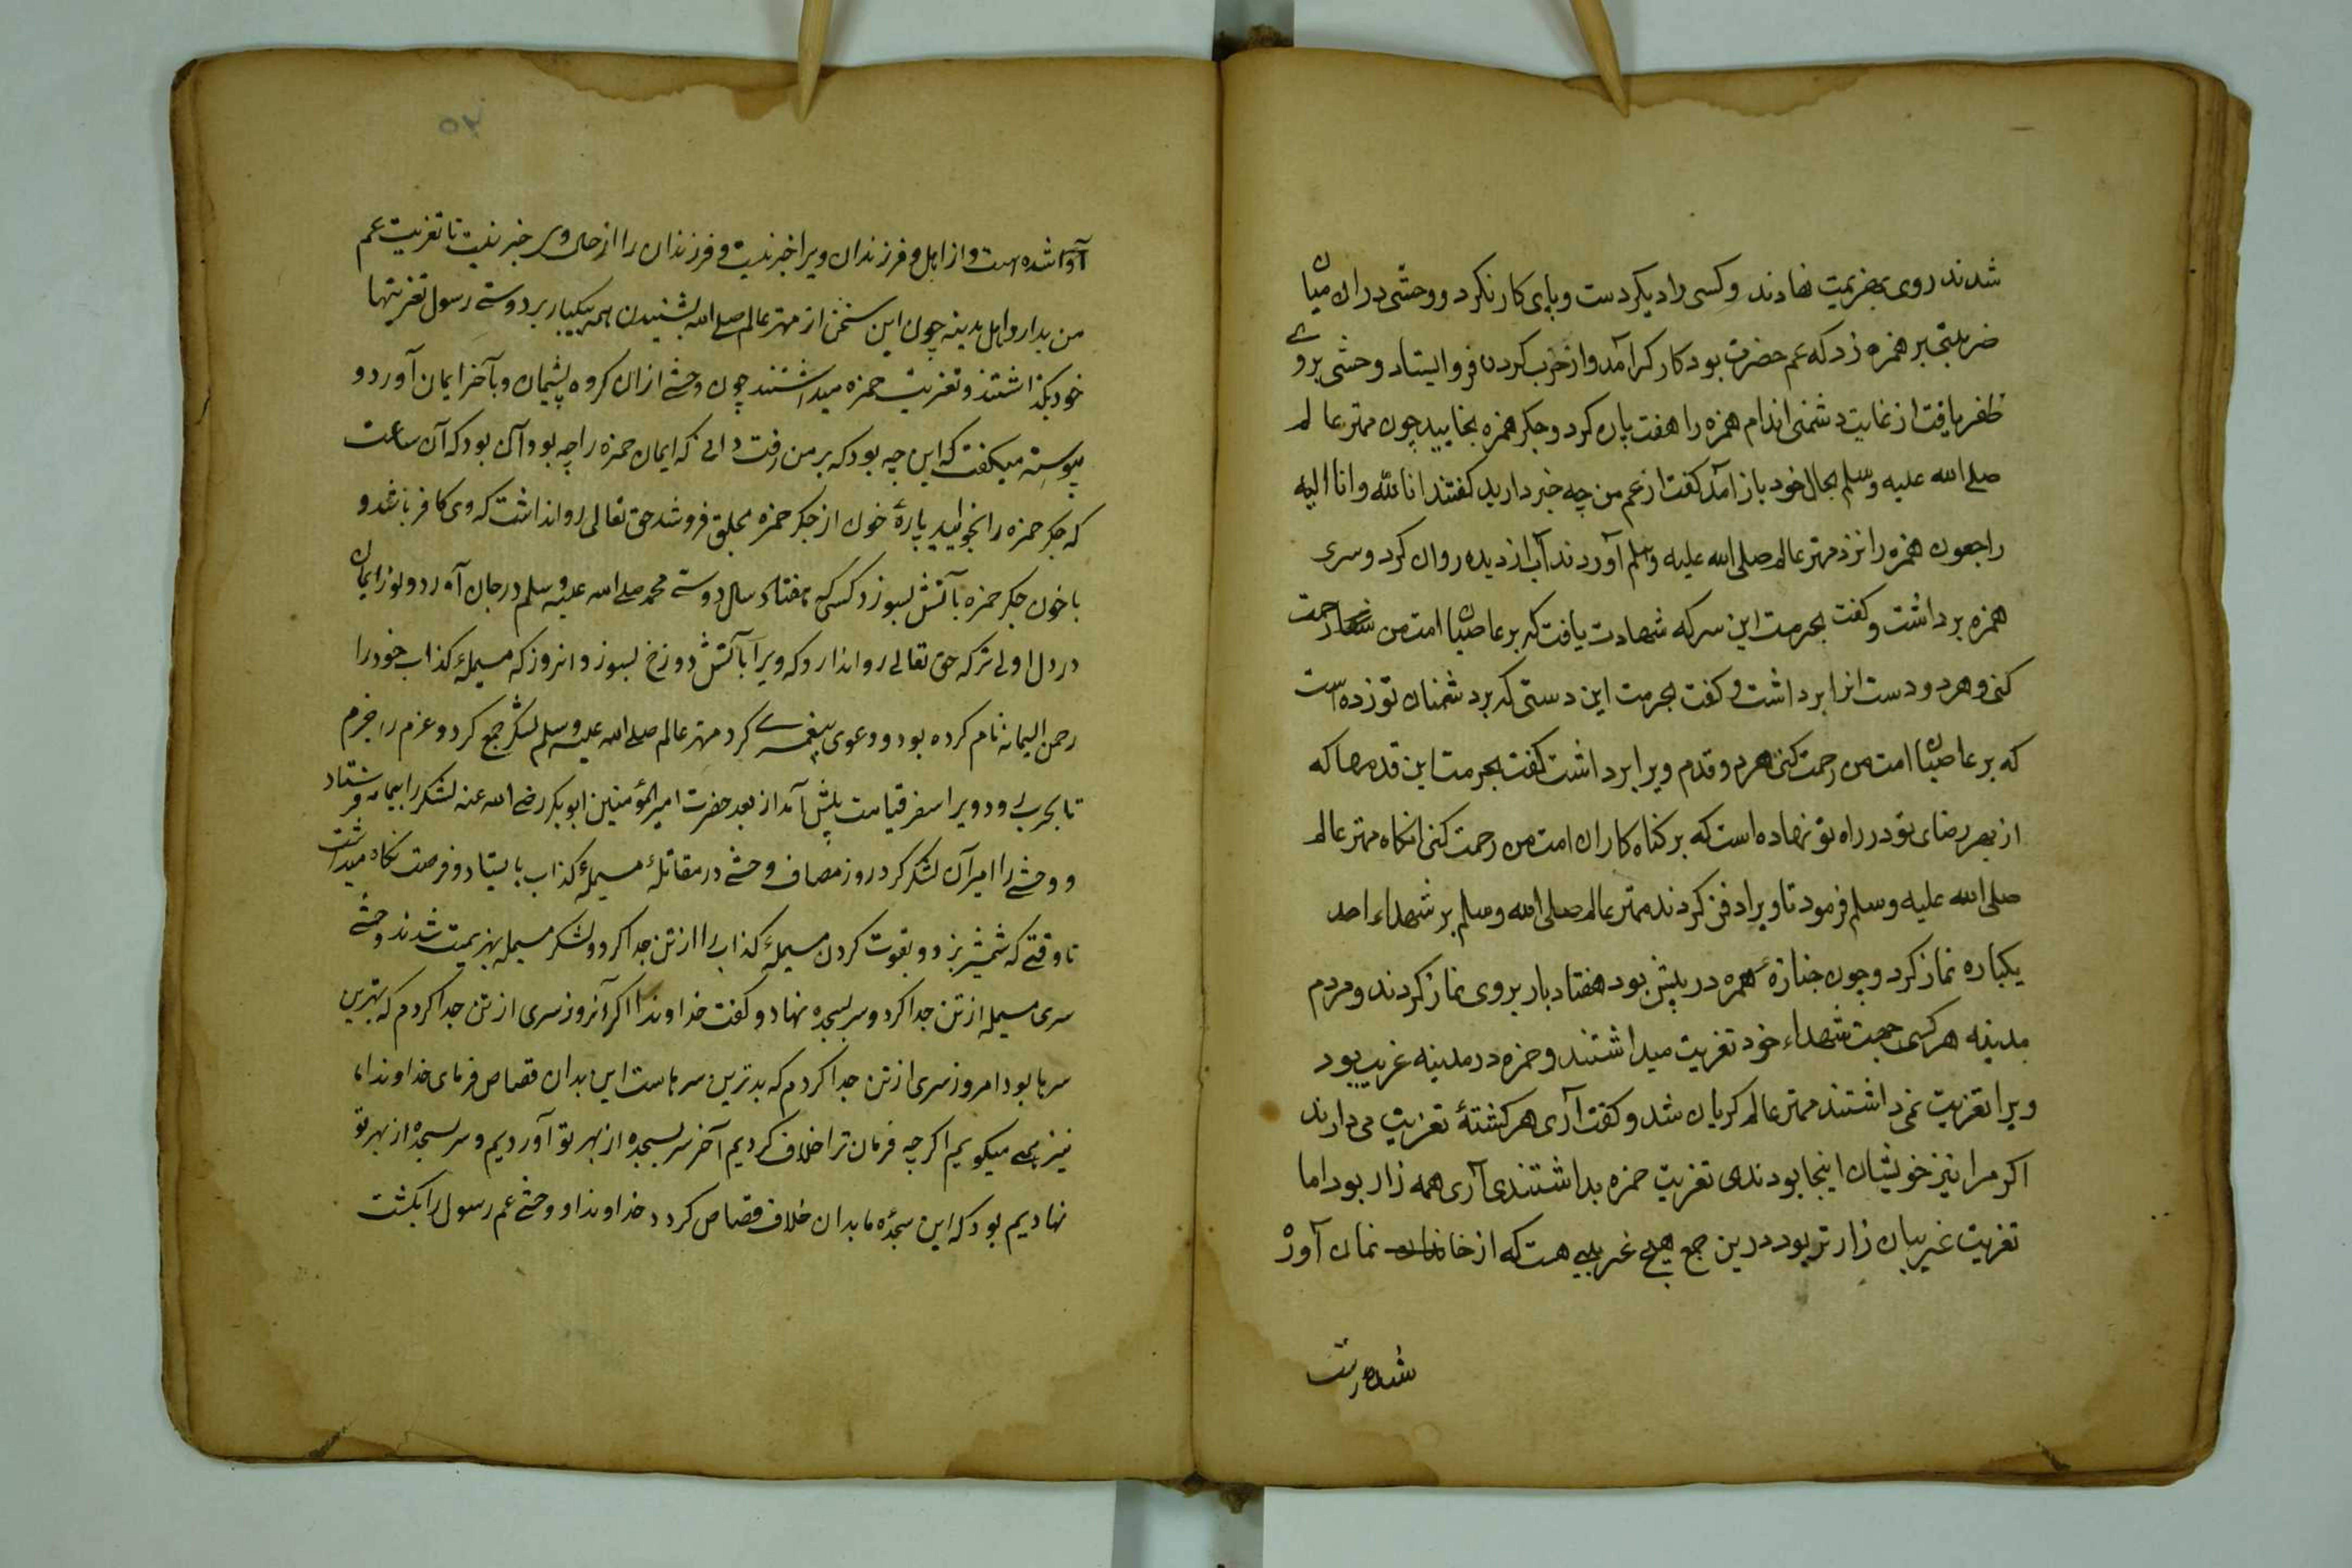 شدند روی بهزیمت نهادند وکسی را دیگر دست و پای کار نکرد و وحشی دران میان
ضربتی بر همزه زد که عم حضرت بود کارگر آمد و از حرب کردن فرو ایستاد وحشی بروے
ظفر یافت از غایت دشمنی اندام همزه را هفت پاره کرد و جکر همزه بخایید چون مهتر عالم
صلے الله علیه وسلم بحال خود باز آمد کفت از عم من چه خبر دارید کفتند انا لله وانا الیه
راجعون همزه را نزد مهتر عالم صلی الله علیه وسلم آوردند آب از دیده روان کرد و سری
همزه برداشت و کفت بحرمت این سر که شهادت یافت که بر عاصیان امت من رحمت
کنی و هر دو دست انرا برداشت و کفت بحرمت این دستی که بر دشمنان تو زده است
که بر عاصیان امت من رحمت کنی هردو قدم ویرا برداشت کفت بحرمت این قدمها که
از بهر رضای تو در راه تو نهاده است که بر کناه کاران امت من رحمت کنی انکاه مهتر عالم
صلی الله علیه وسلم فرمود تا ویرا دفن کردند مهتر عالم صلی الله وسلم بر شهداء احد
یکباره نماز کرد و چون جنازهٔ همزه در پیش بود هفتاد بار بروی نماز کردند و مردم
مدینه هر کسی جهت شهداء خود تعزیت میداشتند و حمزه در مدینه غریب بود
ویرا تعزیت نمی داشتند مهتر عالم کریان شد و کفت آری هر کشتهٔ تعزیت می دارند
اکر مرا نیز خویشان اینجا بودندی تعزیت حمزه بداشتندی آری همه زار بود اما
تعزیت غریبان زارتر بود درین جمع هیچ غریبی هست که از خانمان آواره
شده است
۵۲
آواره شده است و از اهل و فرزندان ویرا خبر نیست و فرزندان را از حال وی خبر نیست تا تعزیت عم
من بدارد اهل مدینه چون این سخن از مهتر عالم صلے الله بشنیدن همه یکبار بر دوستے رسول تعزیتها
خود بکذاشتند و تعزیت حمزه میداشتند چون وحشے ازان کروه پشیمان و بآخر ایمان آورد و
پیوسته میکفت که این چه بود که بر من رفت دانے که ایمان حمزه را چه بود آن بود که آن ساعت
که جکر حمزه را بخوایید پارهٔ خون از جکر حمزه بحلق فروشد حق تعالی روا نداشت که وی کافر باشد و
با خون جکر حمزه بآتش بسوزد کسی که هفتاد سال دوستے محمد صلے الله علیه وسلم در جان آورد و نور ایمان
در دل اولی تر که حق تعالے روا ندارد که ویرا بآتش دوزخ بسوزد و انروز که مسیلمهٔ کذاب خود را
رحمن الیمامه نام کرده بود و دعوی پیغمبرے کرد مهتر عالم صلے الله علیه وسلم لشکر جمع کرد و عزم را جزم
تا بحرب وے رود ویرا سفر قیامت پیش آمد از بعد حضرت امیر المؤمنین ابوبکر رضے الله عنه لشکر را بیمامه فرستاد
و وحشے را امیر آن لشکر کرد روز مصاف وحشے در مقاتلهٔ مسیلمهٔ کذاب بایستاد و فرصت نکاه میداشت
تا وقتے که شمشیر بزد و بقوت کردن مسیلمهٔ کذاب را از تن جدا کرد و لشکر مسیلمه بهزیمت شدند وحشے
سری مسیلمه از تن جدا کرد و سر بسجده نهاد و کفت خداوندا اکر آنروز سری از تن جدا کردم که بهترین
سرها بود امروز سری از تن جدا کردم که بدترین سرهاست این بدان قصاص فرمای خداوندا ما
نیز همے میکوییم اکر چه فرمان ترا خلاف کردیم آخر سر بسجده از بهر تو آوردیم و سر بسجده از بهر تو
نهادیم بود که این سجدهٔ ما بدان خلاف قصاص کردد خداوندا و وحشے عم رسول را بکشت